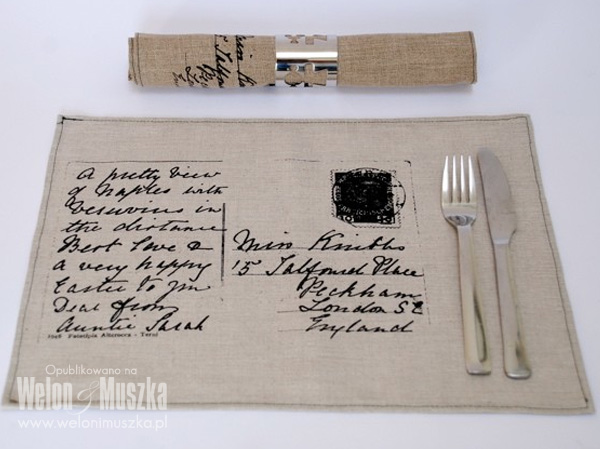 A pretty view
of Naples with
Vesuvius in
the distance
Best Love &
a very happy
Easter to you
Dear from
Auntie Sarah
Miss Knibbs
15 Talfourd Place
Peckham
London SE
England
Opublikowano na
Welon & Muszka
www.welonimuszka.pl